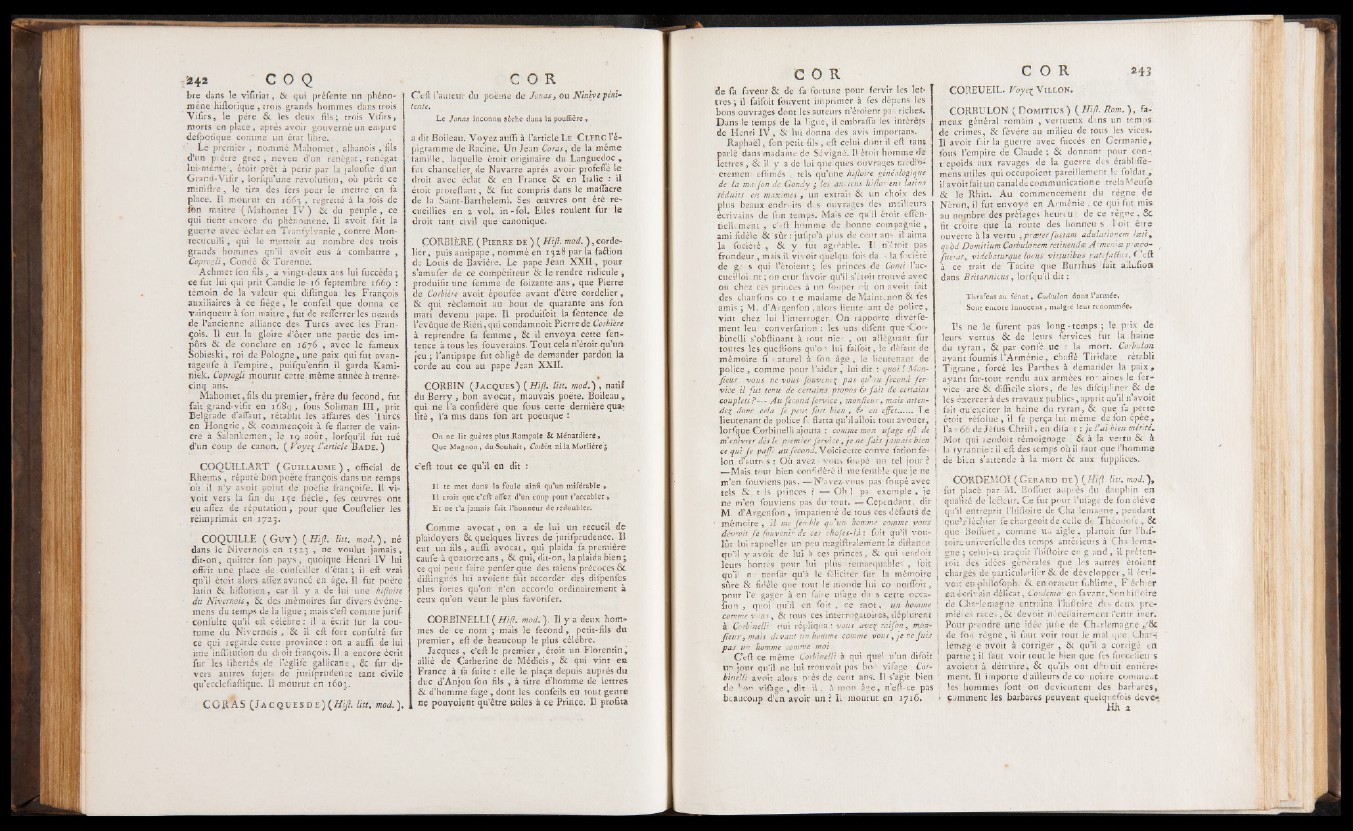 242 C O Q
bre dans le viſiriat, & qui préſente un phéno-
mène hiſtorique, trois grands hommes dans trois
Viſirs, le père & les deux fils; trois Viſirs,
morts en place, après avoir gouverné un empire
deſpotique comme un état libre.
Le premier, nommé Mahomet, albanois, fils
d'un prêtre grec, neveu d'un renégat, renégat
lui-même, étoit prêt à périr par la jalouſie d'un
Grand-Viſir, lorſqu'une révolution, où périt ce
miniſtre, le tira des fers pour le mettre en ſa
place. Il mourut en 1663, regretté à la fois de
ſon maître (Mahomet IV) & du peuple, ce
qui tient encore du phénomène. Il avoit fait la
guerre avec éclat en Tranſylvanie, contre Mon-
tecuculli, qui le mettoit au nombre des trois
grands hommes qu'il avoit eus à combattre,
Coprogli, Condé & Turenne.
Achmet ſon fils, à vingt-deux ans lui ſuccéda;
ce fut lui qui prit Candie le 16 ſeptembre 1669:
témoin de la valeur qui diſtingua les François
auxiliaires à ce ſiège, le conſeil que donna ce
vainqueur à ſon maître, fut de reſſerrer les nœuds
de l'ancienne alliance des Turcs avec les Fran-
çois. Il eut la gloire d'ôter une partie des im-
pôts & de conclure en 1676, avec le fameux
Sobieski, roi de Pologne, une paix qui fut avan-
tageuſe à l'empire, puiſqu'enfin il garda Kami-
niek. Coprogli mourut cette même année à trente-
cinq ans.
Mahomet, fils du premier, frère du ſecond, fut
fait grand-viſir en 1689, ſous Soliman III, prit
Belgrade d'aſſaut, rétablit les affaires des Turcs
en Hongrie, & commençoit à ſe flatter de vain-
cre à Salankemen, le 19 août, lorſqu'il fut tué
d'un coup de canon. (Voyez l'article BADE.)
COQUILLART (GUILLAUME), official de
Rheims, réputé bon poëte françois dans un temps
où il n'y avoit point de poéſie françoiſe. Il vi-
voit vers la fin du 15e ſiècle, ſes œuvres ont
eu aſſez de réputation, pour que Couſtelier les
réimprimât en 1723.
COQUILLE (GUY) (Hiſt. litt. mod.), né
dans le Nivernois en 1523, ne voulut jamais,
dit-on, quitter ſon pays, quoique Henri IV lui
offrit une place de conſeiller d'état; il eſt vrai
qu'il étoit alors aſſez avancé en âge. Il fut poëte
latin & hiſtorien, car il y a de lui une hiſtoire
du Nivernois, & des mémoires ſur divers événe-
mens du temps de la ligue; mais c'eſt comme juriſ-
conſulte qu'il eſt célèbre: il a écrit ſur la cou-
tume du Nivernois, & il eſt fort conſulté ſur
ce qui regarde cette province: on a auſſi de lui
une inſtitution du droit françois. Il a encore écrit
ſur les libertés de l'égliſe gallicane, & ſur di-
vers autres ſujets de juriſprudence tant civile
qu'eccleſiaſtique. Il mourut en 1603.
CORAS (JACQUES DE) (Hiſt. litt. mod.).
C O R
C'eſt l'auteur du poëme de Jonas, ou Ninive péni-
tente.
Le Jonas inconnu sèche dans la pouſſière,
a dit Boileau. Voyez auſſi à l'article LE CLERC l'é-
pigramme de Racine. Un Jean Coras, de la même
famille, laquelle étoit originaire du Languedoc,
fut chancelier de Navarre après avoir profeſſé le
droit avec éclat & en France & en Italie: il
étoit proteſtant, & fut compris dans le maſſacre
de la Saint-Barthelemi. Ses œuvres ont été re-
cueillies en 2 vol. in-fol. Elles roulent ſur le
droit tant civil que canonique.
CORBIÈRE (PIERRE DE) (Hiſt. mod.), corde-
lier, puis antipape, nommé en 1328 par la faction
de Louis de Bavière. Le pape Jean XXII, pour
s'amuſer de ce compétiteur & le rendre ridicule,
produiſit une femme de ſoixante ans, que Pierre
de Corbière avoit épouſée avant d'être cordelier,
& qui réclamoit au bout de quarante ans ſon
mari devenu pape. Il produiſoit la ſentence de
l'évêque de Riéti, qui condamnoit Pierre de Corbière
à reprendre ſa femme, & il envoya cette ſen-
tence à tous les ſouverains. Tout cela n'étoit qu'un
jeu; l'antipape fut obligé de demander pardon la
corde au cou au pape Jean XXII.
CORBIN (JACQUES) (Hiſt. litt. mod.), natif
du Berry, bon avocat, mauvais poëte. Boileau,
qui ne l'a conſidéré que ſous cette dernière qua-
lité, l'a mis dans ſon art poétique:
On ne lit guères plus Rampale & Ménardière,
Que Magnon, du Souhait, Corbin ni la Morlière;
c'eſt tout ce qu'il en dit:
Il te met dans la foule ainſi qu'un miſérable,
Il croit que c'eſt aſſez d'un coup pour t'accabler,
Et ne t'a jamais fait l'honneur de redoubler.
Comme avocat, on a de lui un recueil de
plaidoyers & quelques livres de juriſprudence. Il
eut un fils, auſſi avocat, qui plaida ſa première
cauſe à quatorze ans, & qui, dit-on, la plaida bien;
ce qui peut faire penſer que des talens précoces &
diſtingués lui avoient fait accorder des diſpenſes
plus fortes qu'on n'en accorde ordinairement à
ceux qu'on veut le plus favoriſer.
CORBINELLI (Hiſt. mod.). Il y a deux hom-
mes de ce nom; mais le ſecond, petit-fils du
premier, eſt de beaucoup le plus célèbre.
Jacques, c'eſt le premier, étoit un Florentin,
allié de Catherine de Médicis, & qui vint en
France à ſa ſuite: elle le plaça depuis auprès du
duc d'Anjou ſon fils, à titre d'homme de lettres
& d'homme ſage, dont les conſeils en tout genre
ne pouvoient qu'être utiles à ce Prince. Il profita
C O R
de ſa faveur & de ſa fortune pour ſervir les let-
tres; il faiſoit ſouvent imprimer à ſes dépens les
bons ouvrages dont les auteurs n'étoient pas riches.
Dans le temps de la ligue, il embraſſa les intérêts
de Henri IV, & lui donna des avis importans.
Raphaël, ſon petit fils, eſt celui dont il eſt tant
parlé dans madame de Sévigné. Il étoit homme de
lettres, & il y a de lui quelques ouvrages médio-
cremen eſtimés, tels qu'une hiſtoire généalogique
de la maiſon de Gondy; les anciens hiſtoriens latins
réduits en maximes, un extrait & un choix des
plus beaux endroits des ouvrages des meilleurs
écrivains de ſon temps. Mais ce qu'il étoit eſſen-
tiellement, c'eſt homme de bonne compagnie,
ami fidèle & sûr: juſqu'à plus de cent ans il aima
la ſociété, & y fut agréable. Il n'étoit pas
frondeur, mais il vivoit quelquefois dans la ſociété
de gens qui l'étoient; les princes de Conti l'ac-
cueilloient; on crut ſavoir qu'il s'étoit trouvé avec
ou chez ces princes à un ſouper où on avoit fait
des chanſons contre madame de Maintenon & ſes
amis; M. d'Argenſon, alors lieutenant de police,
vint chez lui l'interroger. On rapporte diverſe-
ment leur converſation: les uns diſent que Cor-
binelli s'obſtinant à tout nier, ou alléguant ſur
toutes les queſtions qu'on lui faiſoit, le défaut de
mémoire ſi naturel à ſon âge, le lieutenant de
police, comme pour l'aider, lui dit: quoi! Mon-
ſieur, vous ne vous ſouvenez pas qu'au ſecond ſer-
vice il fut tenu de certains propos & fait de certains
couplets? — Au ſecond ſervice, monſieur, mais atten-
dez donc cela ſe peut fort bien, & en effet...... Le
lieutenant de police ſe flatta qu'il alloit tout avouer,
lorſque Corbinelli ajouta: comme mon uſage eſt de
m'enivrer dès le premier ſervice, je ne ſais jamais bien
ce qui ſe paſſe au ſecond. Voici cette converſation ſe-
lon d'autres: Où avez-vous ſoupé un tel jour?
— Mais tout bien conſidéré il me ſemble que je ne
m'en ſouviens pas. — N'avez-vous pas ſoupé avec
tels & tels princes? — Oh! par exemple, je
ne m'en ſouviens pas du tout. — Cependant, dit
M. d'Argenſon, impatienté de tous ces défauts de
mémoire, il me ſemble qu'un homme comme vous
devroit ſe ſouvenir de ces choſes-là: ſoit qu'il vou-
lût lui rappeller un peu magiſtralement la diſtance
qu'il y avoit de lui à ces princes, & qui rendoit
leurs bontés pour lui plus remarquables, ſoit
qu'il ne penſât qu'à le féliciter ſur la mémoire
sûre & fidèle que tout le monde lui connoiſſoit,
pour l'engager à en faire uſage dans cette occa-
ſion, quoi qu'il en ſoit, ce mot, un homme
comme vous, & tous ces interrogatoires, déplurent
à Corbinelli qui répliqua: vous avez raiſon, mon-
ſieur, mais devant un homme comme vous, je ne ſuis
pas un homme comme moi.
C'eſt ce même Corbinelli à qui quelqu'un diſoit
un jour qu'il ne lui trouvoit pas bon viſage. Cor-
binelli avoit alors près de cent ans. Il s'agit bien
de bon viſage, dit-il, à mon âge, n'eſt-ce pas
beaucoup d'en avoir un? Il mourut en 1716.
C O R 243
CORBUEIL. Voyez VILLON.
CORBULON (DOMITIUS) (Hiſt. Rom.), fa-
meux général romain, vertueux dans un temps
de crimes, & ſévère au milieu de tous les vices.
Il avoit fait la guerre avec ſuccès en Germanie,
ſous l'empire de Claude; & donnant pour con-
trepoids aux ravages de la guerre des établiſſe-
mens utiles qui occupoient pareillement le ſoldat,
il avoit fait un canal de communication entre la Meuſe
& le Rhin. Au commencement du règne de
Néron, il fut envoyé en Arménie, ce qui fut mis
au nombre des préſages heureux de ce règne, &
fit croire que la route des honneurs alloit être
ouverte à la vertu, præter ſuetam adulationem læti,
quòd Domitium Corbulonem retinendæ Armeniæ præpo-
ſuerat, videbaturque locus virtutibus patefactus. C'eſt
à ce trait de Tacite que Burrhus fait alluſion
dans Britannicus, lorſqu'il dit:
Thraſeas au ſénat, Corbulon dans l'armée,
Sont encore innocens, malgré leur renommée.
Ils ne le furent pas long-temps; le prix de
leurs vertus & de leurs ſervices fut la haine
du tyran, & par conſéquent la mort. Corbulon
ayant ſoumis l'Arménie, chaſſé Tiridate, rétabli
Tigrane, forcé les Parthes à demander la paix,
ayant ſur-tout rendu aux armées romaines le ſer-
vice rare & difficile alors, de les diſcipliner & de
les exercer à des travaux publics, apprit qu'il n'avoit
fait qu'exciter la haine du tyran, & que ſa perte
étoit réſolue, il ſe perça lui même de ſon épée,
l'an 66 de Jéſus Chriſt, en diſant: je l'ai bien mérité.
Mot qui rendoit témoignage & à la vertu & à
la tyrannie: il eſt des temps où il faut que l'homme
de bien s'attende à la mort & aux ſupplices.
CORDEMOI (GERARD DE) (Hiſt. litt. mod.),
fut placé par M. Boſſuet auprès du dauphin en
qualité de lecteur. Ce fut pour l'uſage de ſon élève
qu'il entreprit l'hiſtoire de Charlemagne, pendant
que Fléchier ſe chargeoit de celle de Théodoſe, &
que Boſſuet, comme un aigle, planoit ſur l'hiſ-
toire univerſelle des temps antérieurs à Charlema-
gne; celui-ci traçoit l'hiſtoire en grand, il préſen-
toit des idées générales que les autres étoient
chargés de particulariſer & de développer, il écri-
voit en philoſophe & en orateur ſublime, Fléchier
en écrivain délicat, Cordemoi en ſavant. Son hiſtoire
de Charlemagne entraîna l'hiſtoire des deux pre-
mières races, & devoit néceſſairement l'entraîner.
Pour prendre une idée juſte de Charlemagne, &
de ſon règne, il faut voir tout le mal que Char-
lemagne avoit à corriger, & qu'il a corrigé en
partie; il faut voir tout le bien que ſes ſucceſſeurs
avoient à détruire, & qu'ils ont détruit entière-
ment. Il importe d'ailleurs de connoître comment
les hommes ſont ou deviennent des barbares,
comment les barbares peuvent quelquefois deve-
Hh 2